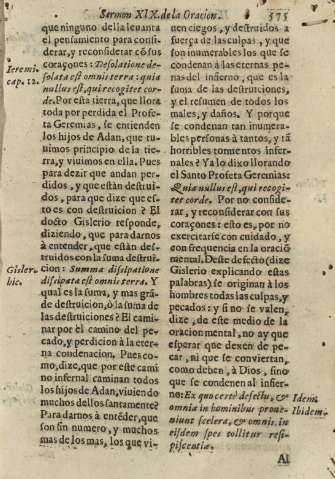 Sermon XIX. de la Oracion. 575
que ninguno della leuanta
el pensamiento para consi-
derar, y reconsiderar cõ sus
coraçones: Desolatione de-
Ieremi.
cap. 12.
solata est omnis terra: quia
nullus est, qui recogitet cor-
de. Por esta tierra, que llora
toda por perdida el Profe-
ta Geremias, se entienden
los hijos de Adan, que tu-
uimos principio de la tie-
rra, y viuimos en ella. Pues
para dezir que andan per-
didos, y que estàn destrui-
dos, para que dize que es-
to es con destruicion? El
docto Gislerio responde,
diziendo, que para darnos
à entender, que estàn des-
truidos con la suma destrui-
Gisler.
hic.
cion: Summa dissipatione
dissipata est omnis terra. Y
qual es la suma, y mas grã-
de destruicion, ò la suma de
las destruiciones? El cami-
nar por el camino del pe-
cado, y perdicion à la eter-
na condenacion. Pues co-
mo, dize, que por este cami
no infernal caminan todos
los hijos de Adan, viuiendo
muchos dellos santamente?
Para darnos à entẽder, que
son sin numero, y muchos
mas de los mas, los que vi-
uen ciegos, y destruidos a
fuerça de las culpas, y que
son inumerables los que se
condenan à las eternas pe-
nas del infierno, que es la
suma de las destruiciones,
y el resumen de todos los
males, y daños. Y porque
se condenan tan inumera-
bles personas à tantos, y tã
horribles tormentos infer-
nales? Ya lo dixo llorando
el Santo Profeta Geremias:
Quia nullus est, qui recogi-
tet corde. Por no conside-
rar, y reconsiderar con sus
coraçones: esto es, por no
exercitarse con cuidado, y
con frequencia en la oraciõ
mental. Deste defecto (dize
Gislerio explicando estas
palabras) se originan à los
hombres todas las culpas, y
pecados: y si no se valen,
dize, de este medio de la
oracion mental, no ay que
esperar que dexen de pe-
car, ni que se conviertan,
como deben, à Dios, sino
que se condenen al infier-
no: Ex quo certè defectu, &
Idem
Ibidem.
omnia in hominibus proue-
niunt scelera, & omnis in
eisdem spes tollitur resi-
piscentiæ.
Al